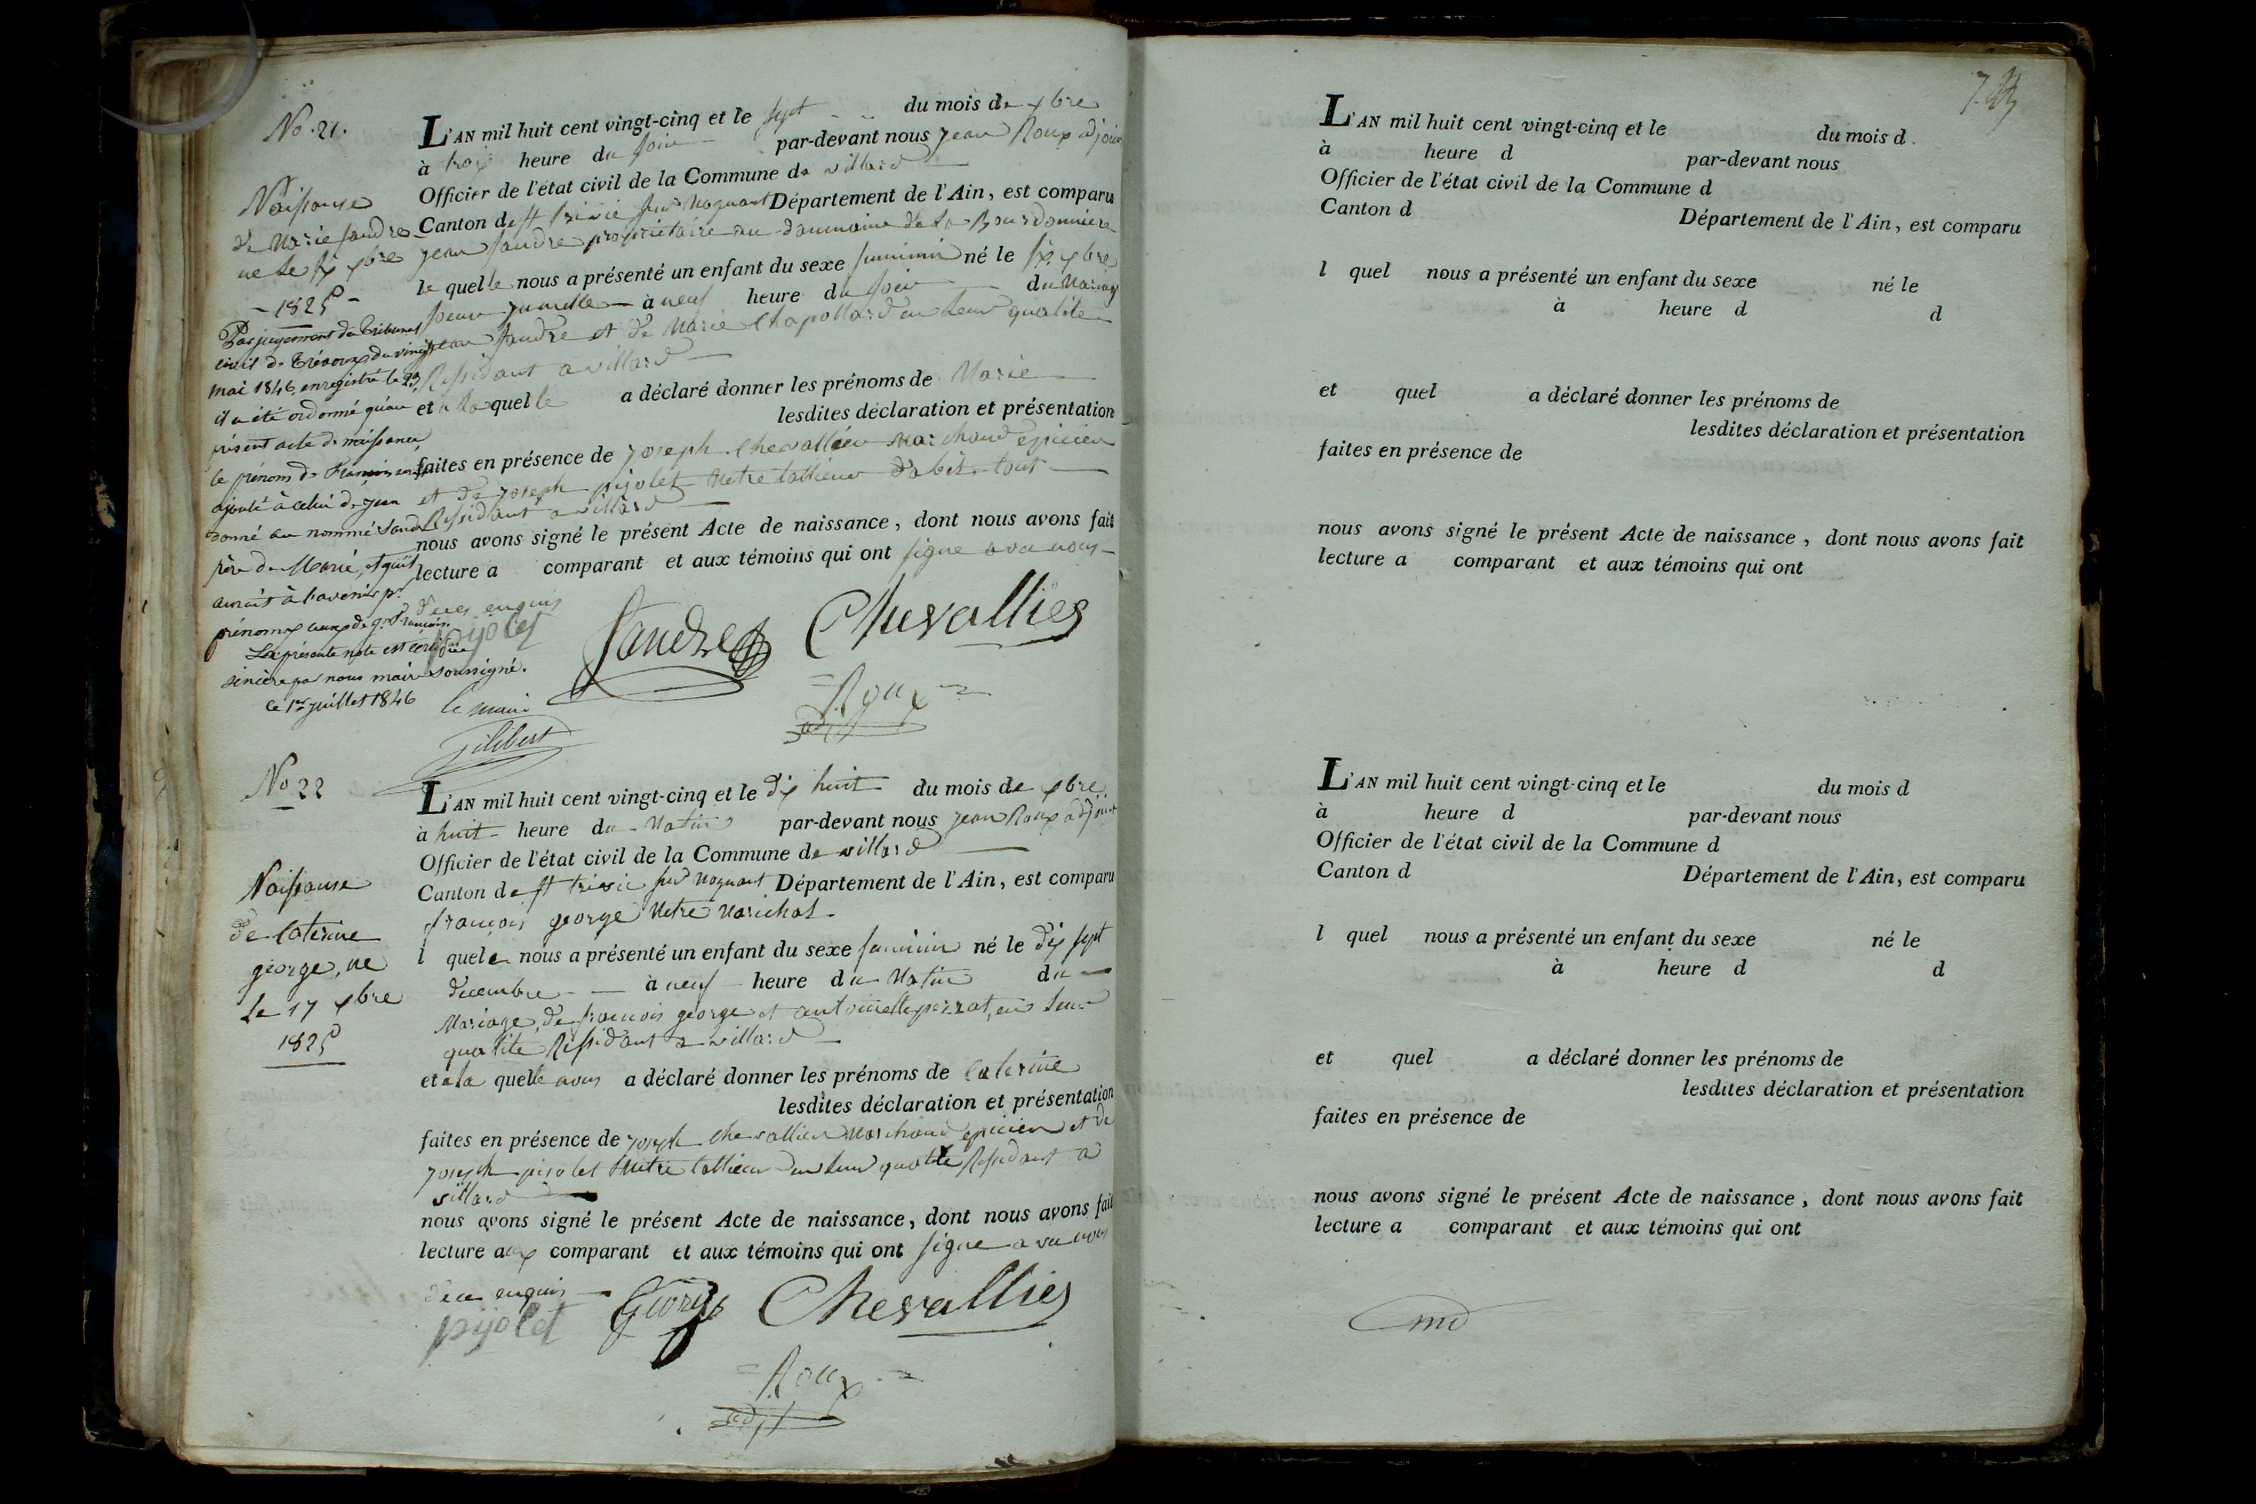 No. 21.
Naissance
de Marie Sandre
né le six xbre
1825
Par jugement du Tribunal
civil de Trévoux du vingt
mai 1846, enregistré le 23,
il a été ordonné qu'au
présent acte de naissance
le prénom de François
ajouté à celui de jean
donné au nommé Sandre
père de Marie, et qu'il
aurait à l'avenir pr
prénoms ceux de jn François.
La présente note est certifiée
sincère par nous maire soussigné.
le 1er juillet 1846
le maire
Gilibert
L'AN mil huit cent vingt-cinq et le sept du mois de xbre
à trois heure du soir par-devant nous jean Roux adjoint
Officier de l'état civil de la Commune de villard
Canton de st trivié sur Mognant Département de l'Ain, est comparu
jean Sandre propriétaire au doumaine de la Bourdonniere
le quelle nous a présenté un enfant du sexe feminin né le six xbre
à neuf heure du soir du Mariage
jean Sandre et de Marie Chapollard en leur qualité
Ressidant a villard
et a la quelle a déclaré donner les prénoms de Marie
lesdites déclaration et présentation
faites en présence de joseph Chevallier Marchand épicier
et de joseph pijolet Metre tallieur d'abit tout
Ressidant a villard
nous avons signé le présent Acte de naissance, dont nous avons fait
lecture a comparant et aux témoins qui ont signe a vec nous
de ces enquis
pijolet Sandre Chevallier
Roux
adjt
No 22
Naissance
de Caterine
george, né
le 17 xbre
1825
L'AN mil huit cent vingt-cinq et le dix huit du mois de xbre
à huit heure du Matin par-devant nous jean Roux adjoint
Officier de l'état civil de la Commune de villard
Canton de st trivié sur Mognant Département de l'Ain, est comparu
françois george Metre Marichal
l quele nous a présenté un enfant du sexe feminin né le dix sept
decembre à neuf heure du Matin du
Mariage, de francois george et antoinette perrat, en leur
qualité Ressidant a villard
et a la quelle avons a déclaré donner les prénoms de Caterine
lesdites déclaration et présentation
faites en présence de joseph chevallier Marchand epicier et de
joseph pijolet Metre tallieur en leur qualité Ressidant a
villard
nous avons signé le présent Acte de naissance, dont nous avons fait
lecture aux comparant et aux témoins qui ont signe a vec nous
de ce enquis
pijolet George Chevallier
Roux
adjt
L'AN mil huit cent vingt-cinq et le du mois d
à heure d par-devant nous
Officier de l'état civil de la Commune d
Canton d Département de l'Ain, est comparu
l quel nous a présenté un enfant du sexe né le
à heure d d
et quel a déclaré donner les prénoms de
lesdites déclaration et présentation
faites en présence de
nous avons signé le présent Acte de naissance, dont nous avons fait
lecture a comparant et aux témoins qui ont
L'AN mil huit cent vingt-cinq et le du mois d
à heure d par-devant nous
Officier de l'état civil de la Commune d
Canton d Département de l'Ain, est comparu
l quel nous a présenté un enfant du sexe né le
à heure d d
et quel a déclaré donner les prénoms de
lesdites déclaration et présentation
faites en présence de
nous avons signé le présent Acte de naissance, dont nous avons fait
lecture a comparant et aux témoins qui ont